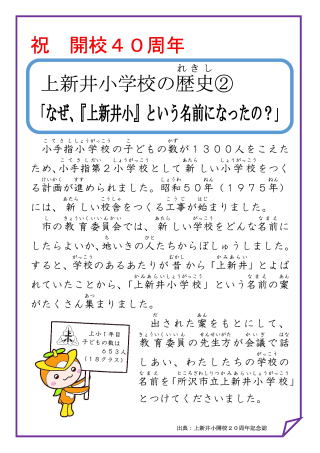 祝　開校４０周年
上新井小学校の歴史②
れきし
「なぜ、『上新井小』という名前になったの？」
小手指小学校の子どもの数が１３００人をこえた
ため、小手指第２小学校として新しい小学校をつく
る計画が進められました。昭和５０年（１９７５年）
には、新しい校舎をつくる工事が始まりました。
市の教育委員会では、新しい学校をどんな名前に
したらよいか、地いきの人たちからぼしゅうしました。
すると、学校のあるあたりが昔から「上新井」とよば
れていたことから、「上新井小学校」という名前の案
がたくさん集まりました。
出された案をもとにして、
教育委員の先生方が会議で話
しあい、わたしたちの学校の
名前を「所沢市立上新井小学校」
とつけてくださいました。
上小１年目
子どもの数は
６５３人
（１８クラス）
出典：上新井小開校２０周年記念誌